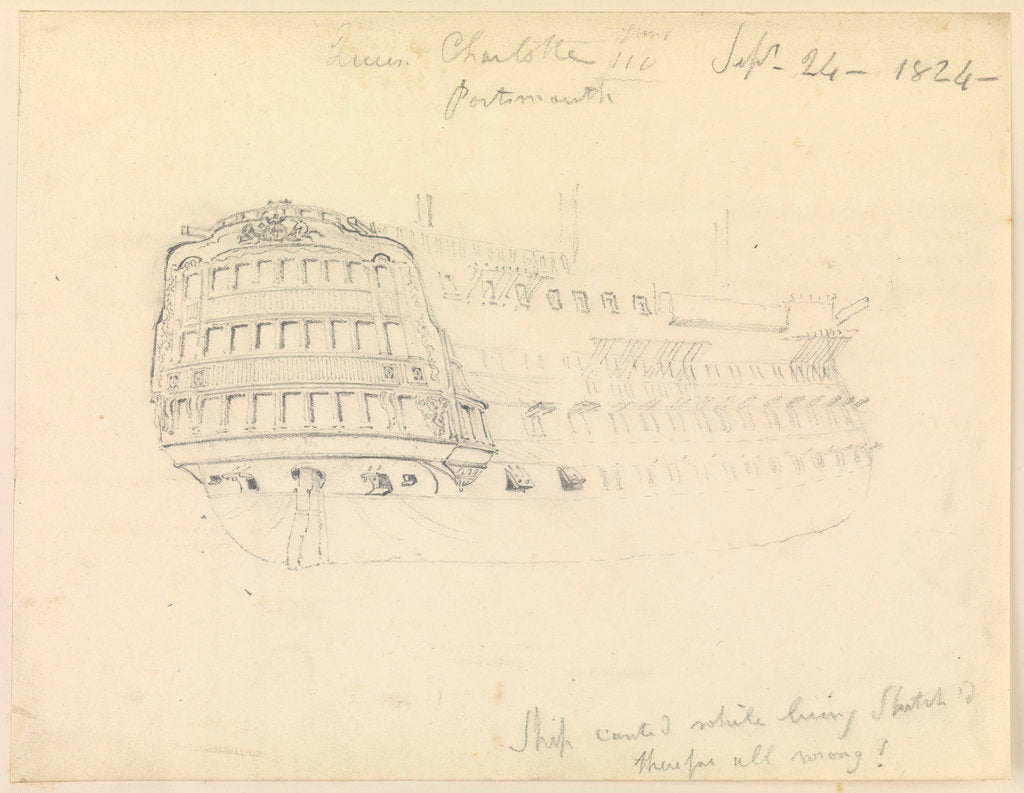 Queen Charlotte 110 Guns Sepr. 24 - 1824 -
Portsmouth
Ship canted while being Sketch'd
therefore all wrong!